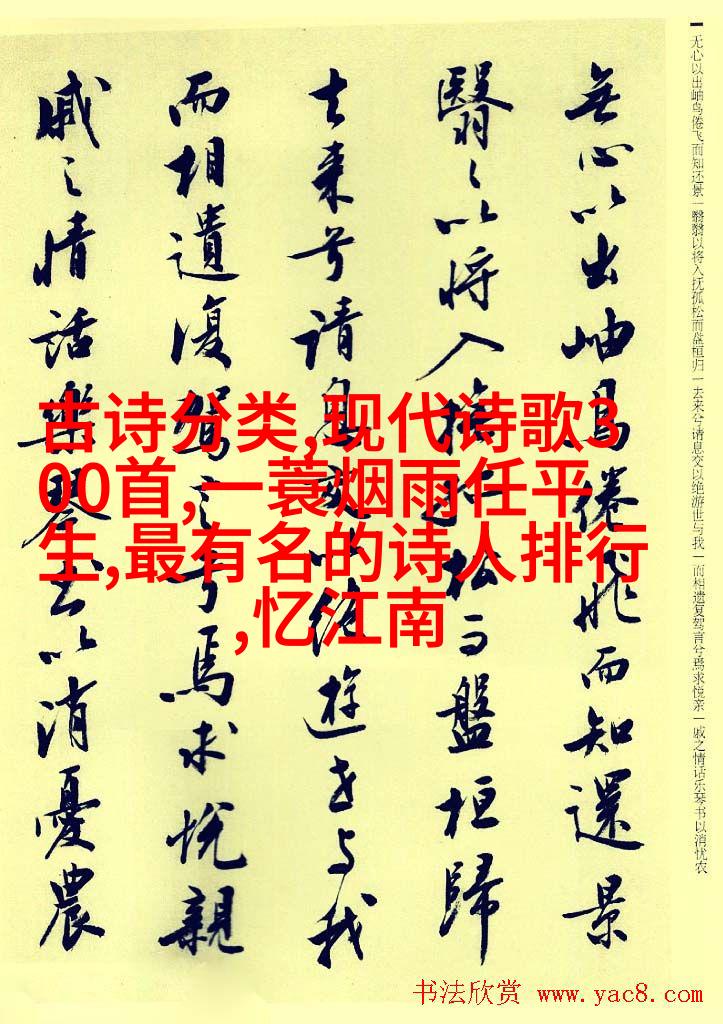 无心以出岫鸟倦飞而知还景一翳翳以将入抚孤松而盘桓归一去来兮请息交以绝游世与我一而相遗复驾言兮焉求悦亲一戚之情话乐琴书以消忧农
無心以出岫鳥倦飛而知還景
翳〻以将入撫孤松而盤桓歸
去来兮請息交以絶遊世与我
而相遺復駕言兮焉求悦親
戚之情話樂琴書以消憂農
古诗分类,现代诗歌3
00首,一蓑烟雨任平
生,最有名的诗人排行
,忆江南
书法欣赏 www.yac8.com